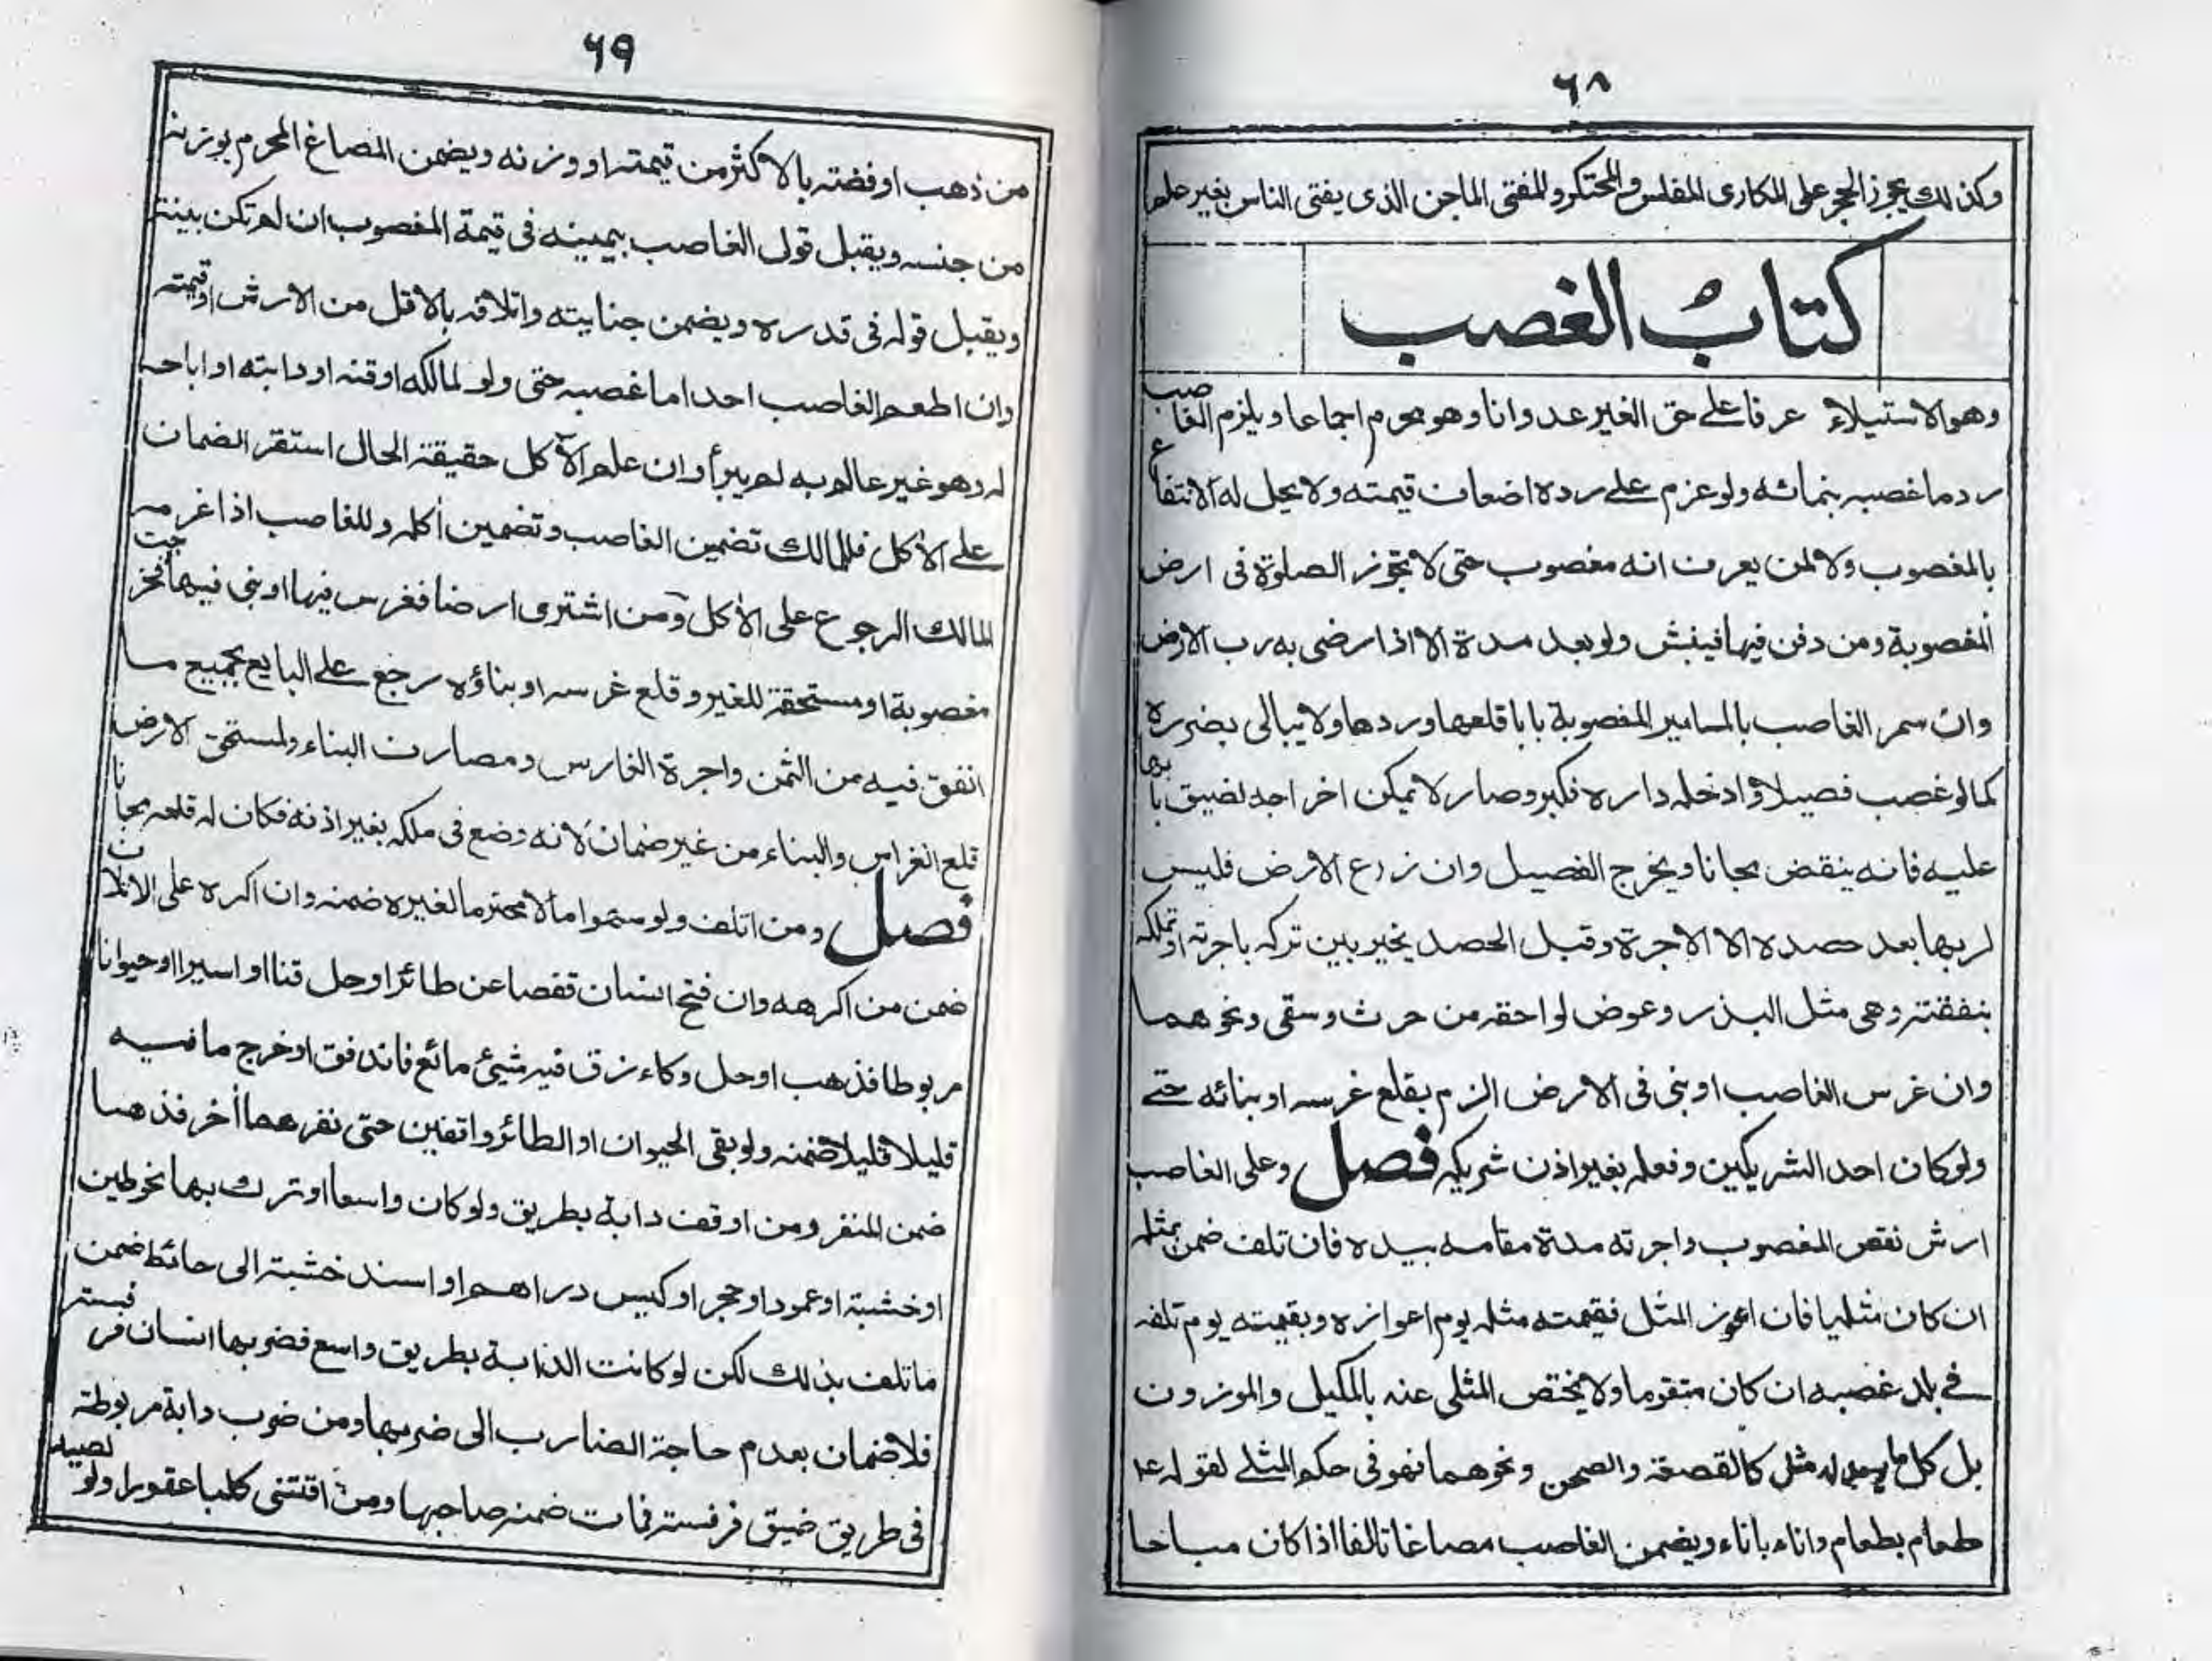 ٦٨
وكذلك يجوز الحجر على المكارى المفلس والمحتكر والمفتى الماجن الذى يفتى الناس بغير علم
كتابُ الغصب
وهو الاستيلاء عرفا على حق الغير عدوانا وهو محرم اجماعا ويلزم الغاصب
رد ما غصبه بنمائه ولو غرم على رده اضعاف قيمته ولا يحل له الانتفاع
بالمغصوب ولا لمن يعرف انه مغصوب حتى لا تجوز الصلوة فى ارض
المغصوبة ومن دفن فيها فينبش ولو بعد مدة الا اذا رضى به رب الارض
وان سمر الغاصب بالمسامير المغصوبة بابا قلعها وردها ولا يبالى بضرره
كما لو غصب فصيلا وادخله داره فكبر وصار لا يمكن اخراجه لضيق بابها
عليه فانه ينقض مجانا ويخرج الفصيل وان زرع الارض فليس
لربها بعد حصده الا الاجرة وقبل الحصد يخير بين تركه باجرته او تملكه
بنفقته وهى مثل البذر وعوض لواحقه من حرث وسقى ونحوهما
وان غرس الغاصب او بنى فى الارض الزم بقلع غرسه او بنائه حتى
ولو كان احد الشريكين وفعله بغير اذن شريكه فصل وعلى الغاصب
ارش نقص المغصوب واجرته مدة مقامه بيده فان تلف ضمن بمثله
ان كان مثليا فان اعوز المثل فقيمته مثله يوم اعوازه وبقيمته يوم تلفه
فى بلد غصبه ان كان متقوما ولا يختص المثلى عنه بالمكيل والموزون
بل كل ما له مثل كالقصعة والصحن ونحوهما فهو فى حكم المثلى لقوله عـ
طعام بطعام واناء باناء ويضمن الغاصب مصاغا تالفا اذا كان مباحا
٦٩
من ذهب او فضته بالاكثر من قيمته او وزنه ويضمن المصاغ المحرم بوزنه
من جنسه ويقبل قول الغاصب بيمينه فى قيمة المغصوب ان لم تكن بينة
ويقبل قوله فى قدره ويضمن جنايته واتلافه بالاقل من الارش او قيمته
وان اطعم الغاصب احدا ما غصبه حتى ولو لمالكه او قنه او دابته او اباحه
له وهو غير عالم به لم يبرأ وان علم الآكل حقيقة الحال استقر الضمان
على الآكل فللمالك تضمين الغاصب وتضمين اكله وللغاصب اذا غرمه
المالك الرجوع على الآكل ومن اشترى ارضا فغرس فيها او بنى فيها فخرجت
مغصوبة او مستحقة للغير وقلع غرسه او بناؤه رجع على البايع بجميع ما
انفق فيه من الثمن واجرة الغارس ومصارف البناء ولمستحق الارض
قلع الغراس والبناء من غير ضمان لانه وضع فى ملكه بغير اذنه فكان له قلعه مجانا
فصل ومن اتلف ولو سهوا مالا محترما لغيره ضمنه وان اكره على الاتلاف
ضمن من اكرهه وان فتح انسان قفصا عن طائر او حل قنا او اسيرا او حيوانا
مربوطا فذهب او حل وكاء زق فيه شيئ مائع فاندفق او خرج ما فيه
قليلا قليلا ضمنه ولو بقى الحيوان او الطائر واقفين حتى نفرهما أخر فذهبا
ضمن المنفر ومن اوقف دابة بطريق ولو كان واسعا او ترك بها نحو طين
او خشبة او عمود او حجر او كيس دراهم او اسند خشبة الى حائط ضمن
ما تلف بذلك لكن لو كانت الدابة بطريق واسع فضربها انسان فرفسته
فلا ضمان بعدم حاجة الضارب الى ضربها ومن ضرب دابة مربوطة
فى طريق ضيق فرفسته فمات ضمنه صاحبها ومن اقتنى كلبا عقورا ولو لصيد